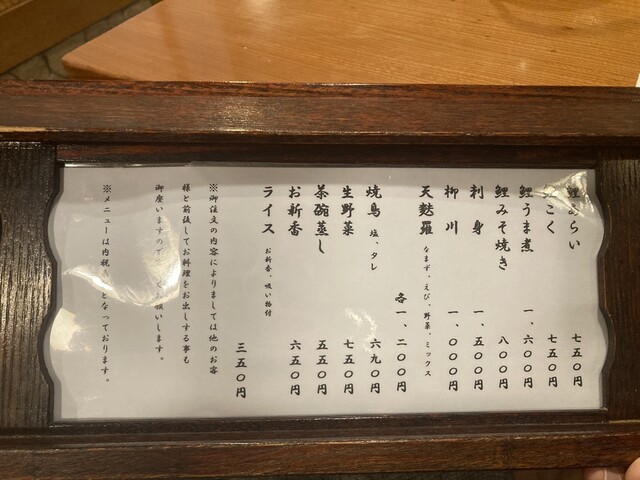 鯉あらい 七五〇円
こく 七五〇円
鯉うま煮 一、六〇〇円
鯉みそ焼き 八〇〇円
刺身 一、五〇〇円
柳川 一、〇〇〇円
天麩羅 なまず、えび、野菜、ミックス
各一、二〇〇円
焼鳥 塩、タレ 六九〇円
生野菜 七五〇円
茶碗蒸し 五五〇円
お新香 六五〇円
ライス お新香、吸い物付
三五〇円
※御注文の内容によりましては他のお客
様と前後してお料理をお出しする事も
御座いますので 願いします。
※メニューは内税 となっております。